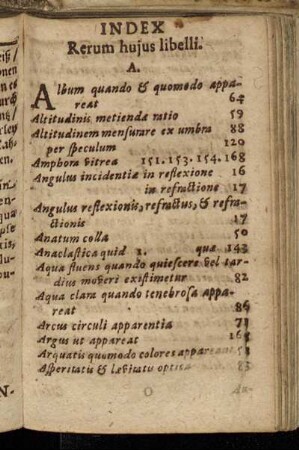 INDEX
Rerum hujus libelli.
A.
Album quando & quomodo appa-
reat 64
Altitudinis metiendæ ratio 59
Altitudinem mensurare ex umbra 88
per speculum 120
Amphora vitrea 151. 153. 154. 168
Angulus incidentiæ in reflexione 16
in refractione 17
Angulus reflexionis, refractus, & refra-
ctionis 17
Anatum colla 50
Anaclastica quid 1. quæ 143
Aqua fluens quando quiescere vel tar-
dius moveri existimetur 82
Aqua clara quando tenebrosa appa-
reat 86
Arcus circuli apparentia 71
Argus ut appareat
Arquatis quomodo colores appareant
Asperitatis & lævitatis optica 83
O